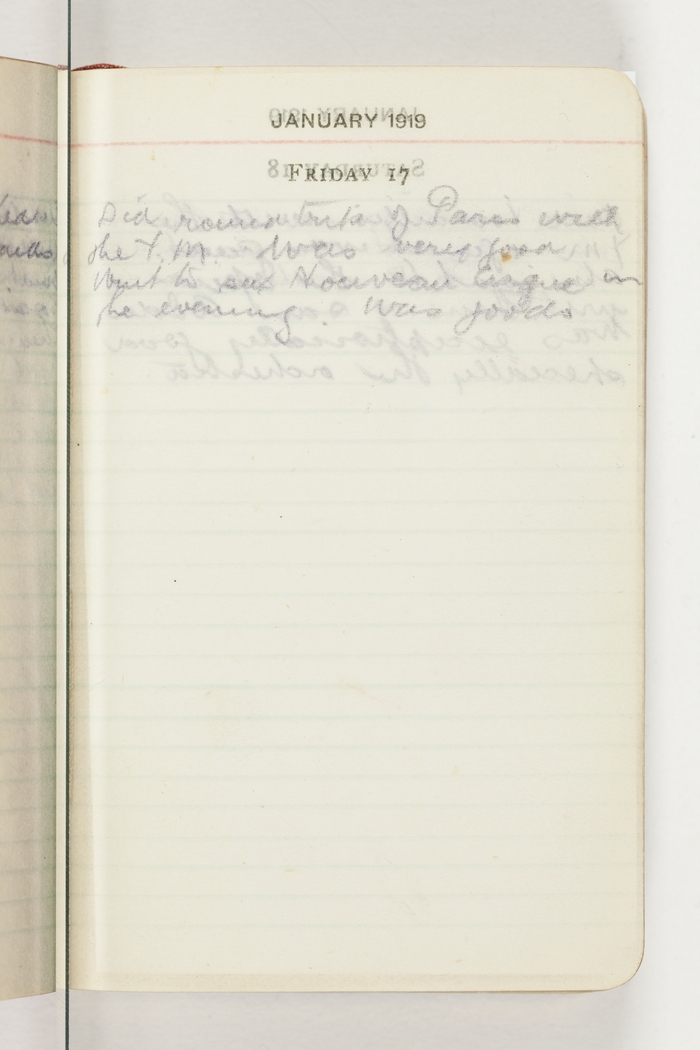 JANUARY 1919
FRIDAY 17
Did round trip of Paris with
the Y.M. Was very good
Went to see Nouveau Cirque in
the evening. Was good